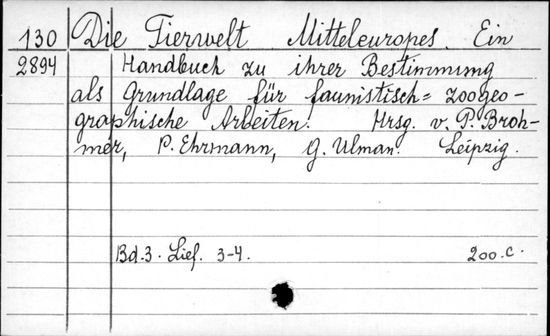 130 Die Tierwelt Mitteleuropes. Ein
2894 Handbuch zu ihrer Bestimmung
als Grundlage für faunistisch= zoogeo-
graphische Arbeiten. Hrsg. v. P. Broh-
mer, P. Ehrmann, G. Ulman. Leipzig.
Bd.3. Lief. 3-4. 200.c.